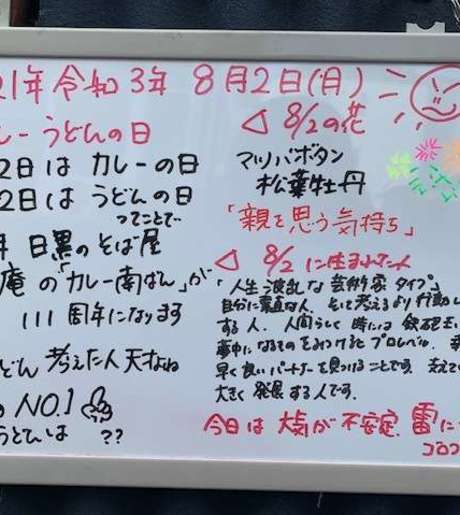 21年 令和3年 8月2日(月)
レーうどんの日
2日は カレーの日
2日は うどんの日
ってことで
年 目黒のそば屋
庵の「カレー南ばん」が
111周年になります
どん 考えた人 天才ね
の NO.1
うどんは ??
◁ 8/2の花
マツバボタン
松葉牡丹
「親を思う気持ち」
◁ 8/2に生まれた人
「人生波乱な芸術家タイプ」
自分に素直な人、そして考えるより行動
する人。人間らしく 時には
夢中になるものをみつけるとプロレベル。
早く良いパートナーを見つけることです。支えて
大きく 発展する人です。
今日は 大気が不安定。雷に
ゴロゴ